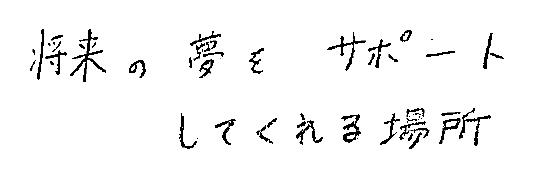 将来の夢を サポート
してくれる場所